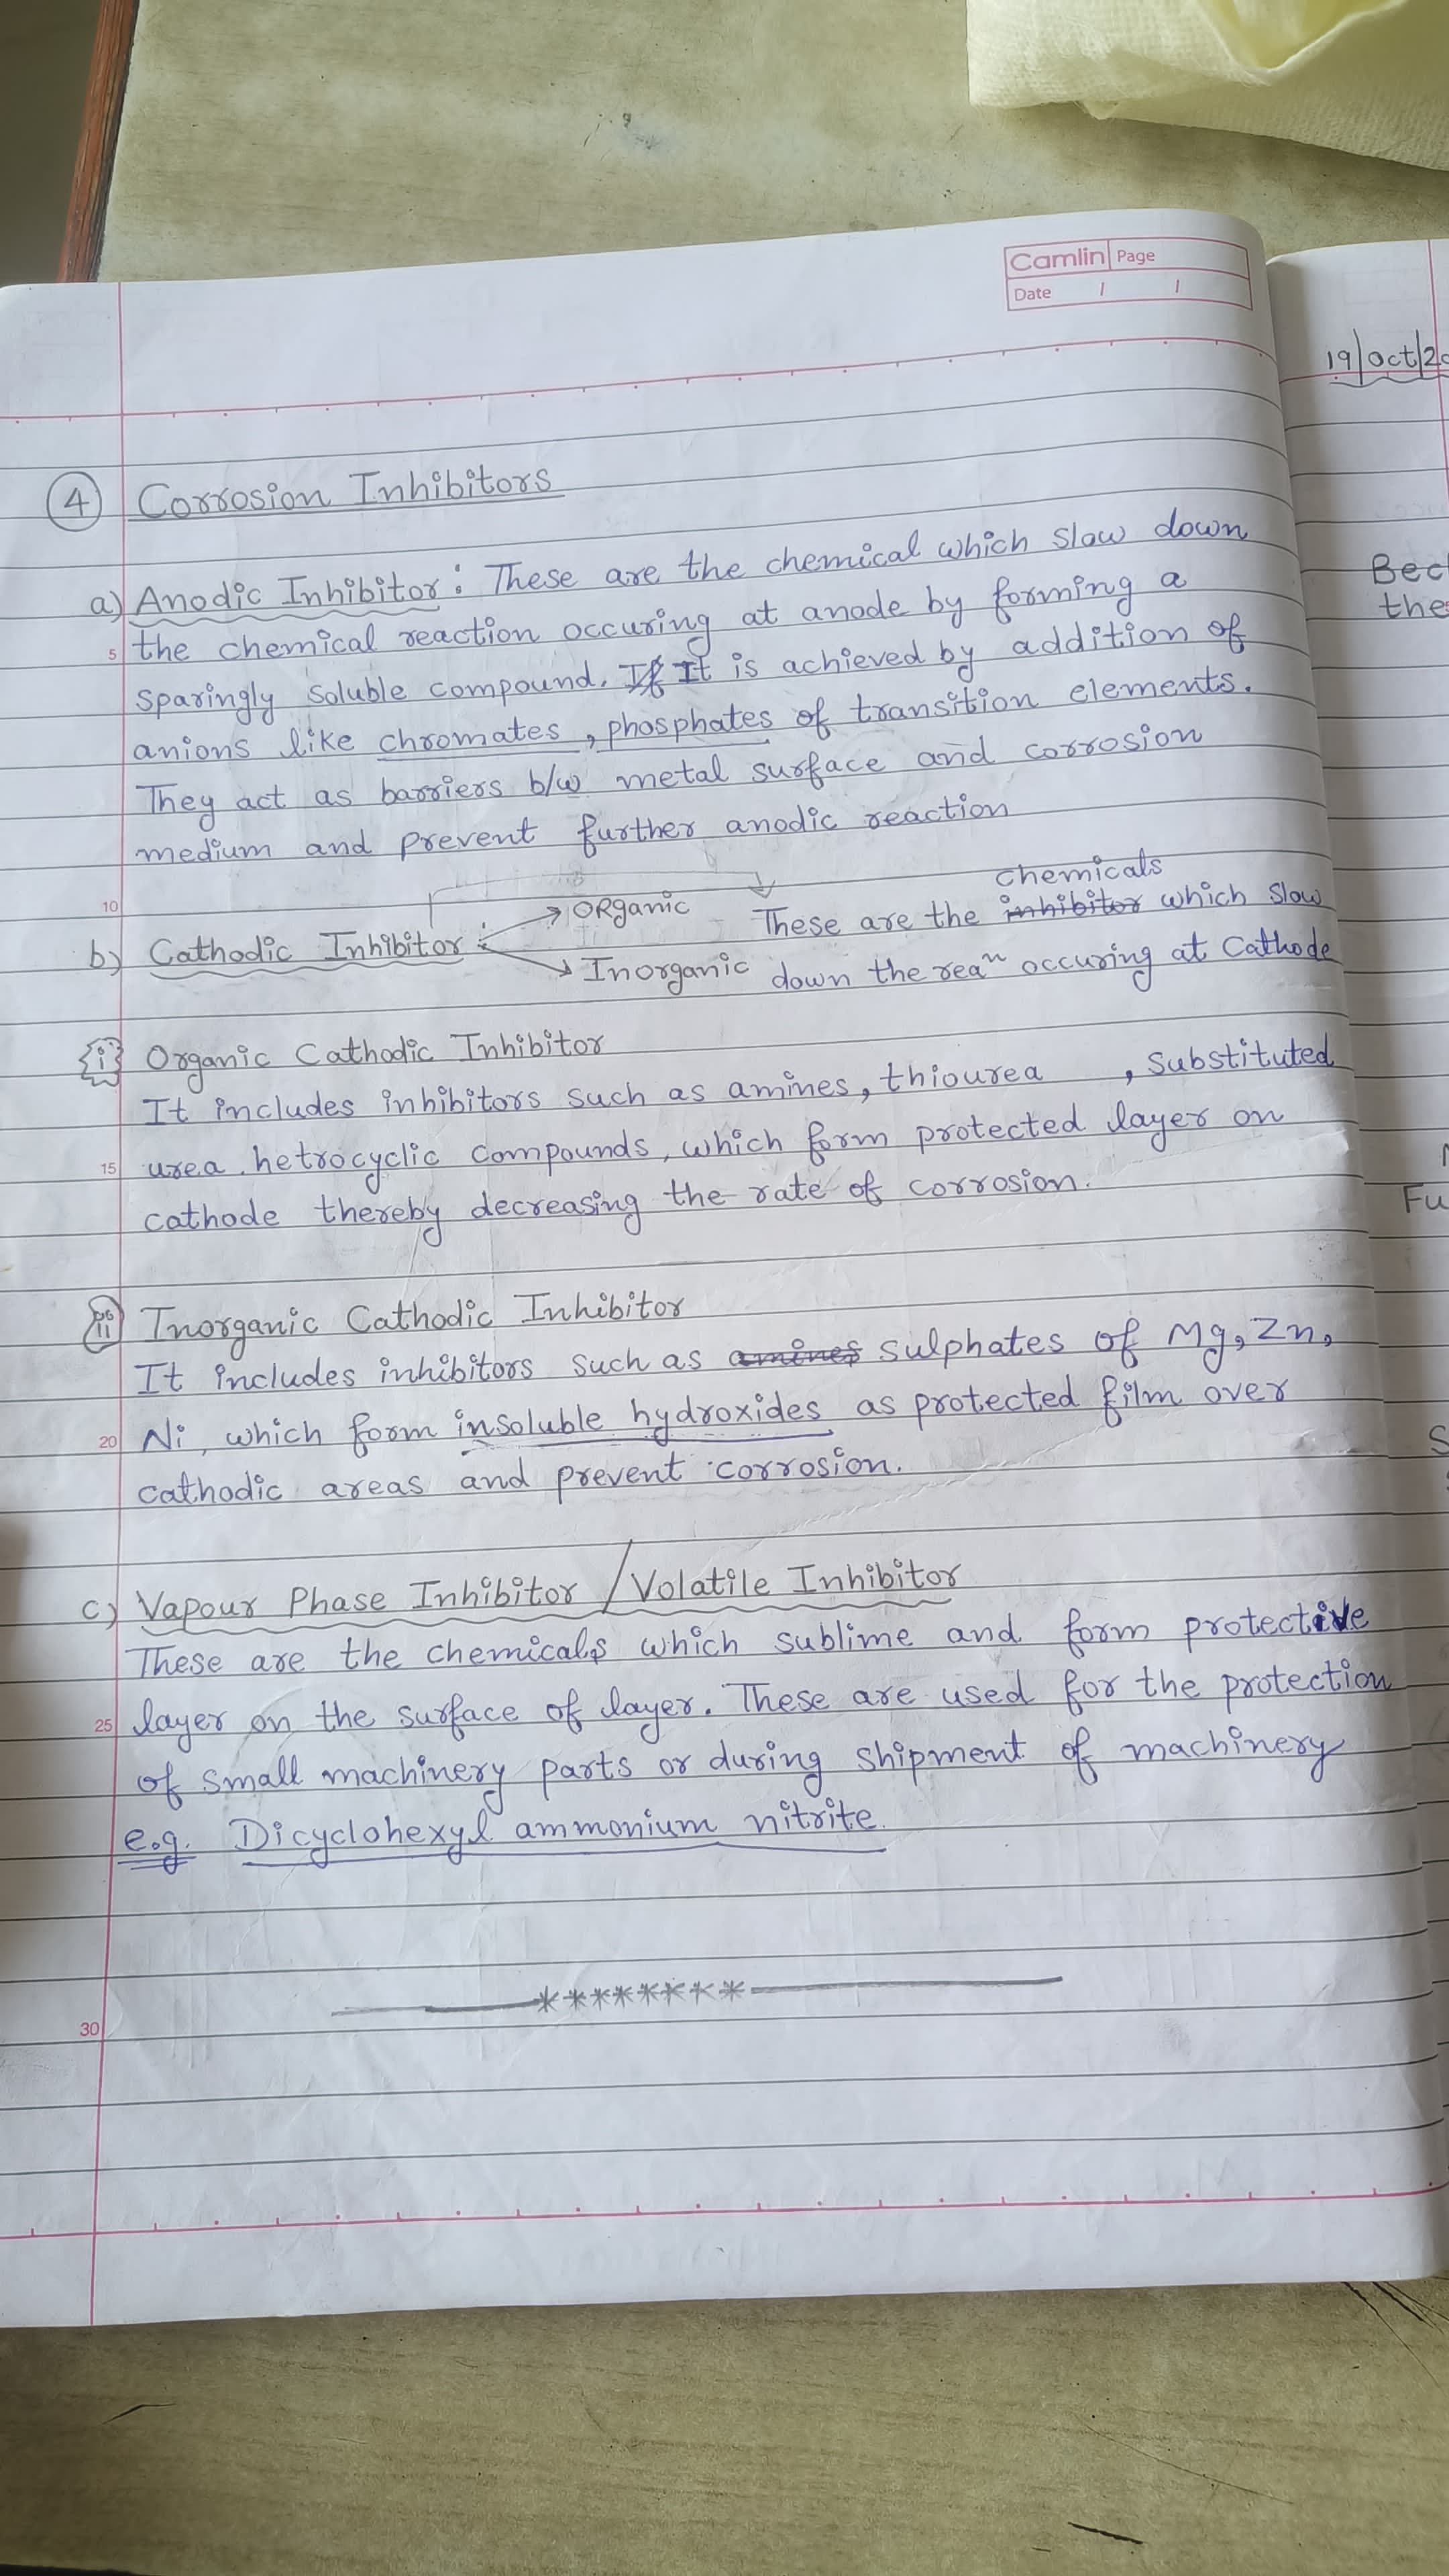 Camlin Page
Date / /
19/Oct/2
④ Corrosion Inhibitors
a) Anodic Inhibitor: These are the chemical which slow down
5 the chemical reaction occuring at anode by forming a
sparingly soluble compound. If It is achieved by addition of
anions like chromates, phosphates of transition elements.
They act as barriers b/w metal surface and corrosion
medium and prevent further anodic reaction
10
chemicals
→ ORganic These are the inhibitor which slow
b) Cathodic Inhibitor :
→ Inorganic down the reaⁿ occuring at Cathode
i) Organic Cathodic Inhibitor
It includes inhibitors such as amines, thiourea , substituted
15 urea, hetrocyclic compounds, which form protected layer on
cathode thereby decreasing the rate of corrosion.
ii) Inorganic Cathodic Inhibitor
It includes inhibitors such as amines sulphates of Mg, Zn,
20 Ni, which form insoluble hydroxides as protected film over
cathodic areas and prevent corrosion.
c) Vapour Phase Inhibitor / Volatile Inhibitor
These are the chemicals which sublime and form protective
25 layer on the surface of layer. These are used for the protection
of small machinery parts or during shipment of machinery
e.g. Dicyclohexyl ammonium nitrite.
********
30
Bec
the
Fu